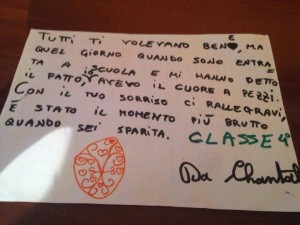 TUTTI TI VOLEVANO BENE, MA
QUEL GIORNO QUANDO SONO ENTRA
TA A SCUOLA E MI HANNO DETTO
IL FATTO AVEVO IL CUORE A PEZZI.
CON IL TUO SORRISO CI RALLEGRAVI,
È STATO IL MOMENTO PIÙ BRUTTO
QUANDO SEI SPARITA.
CLASSE 4ª
Da Chantal